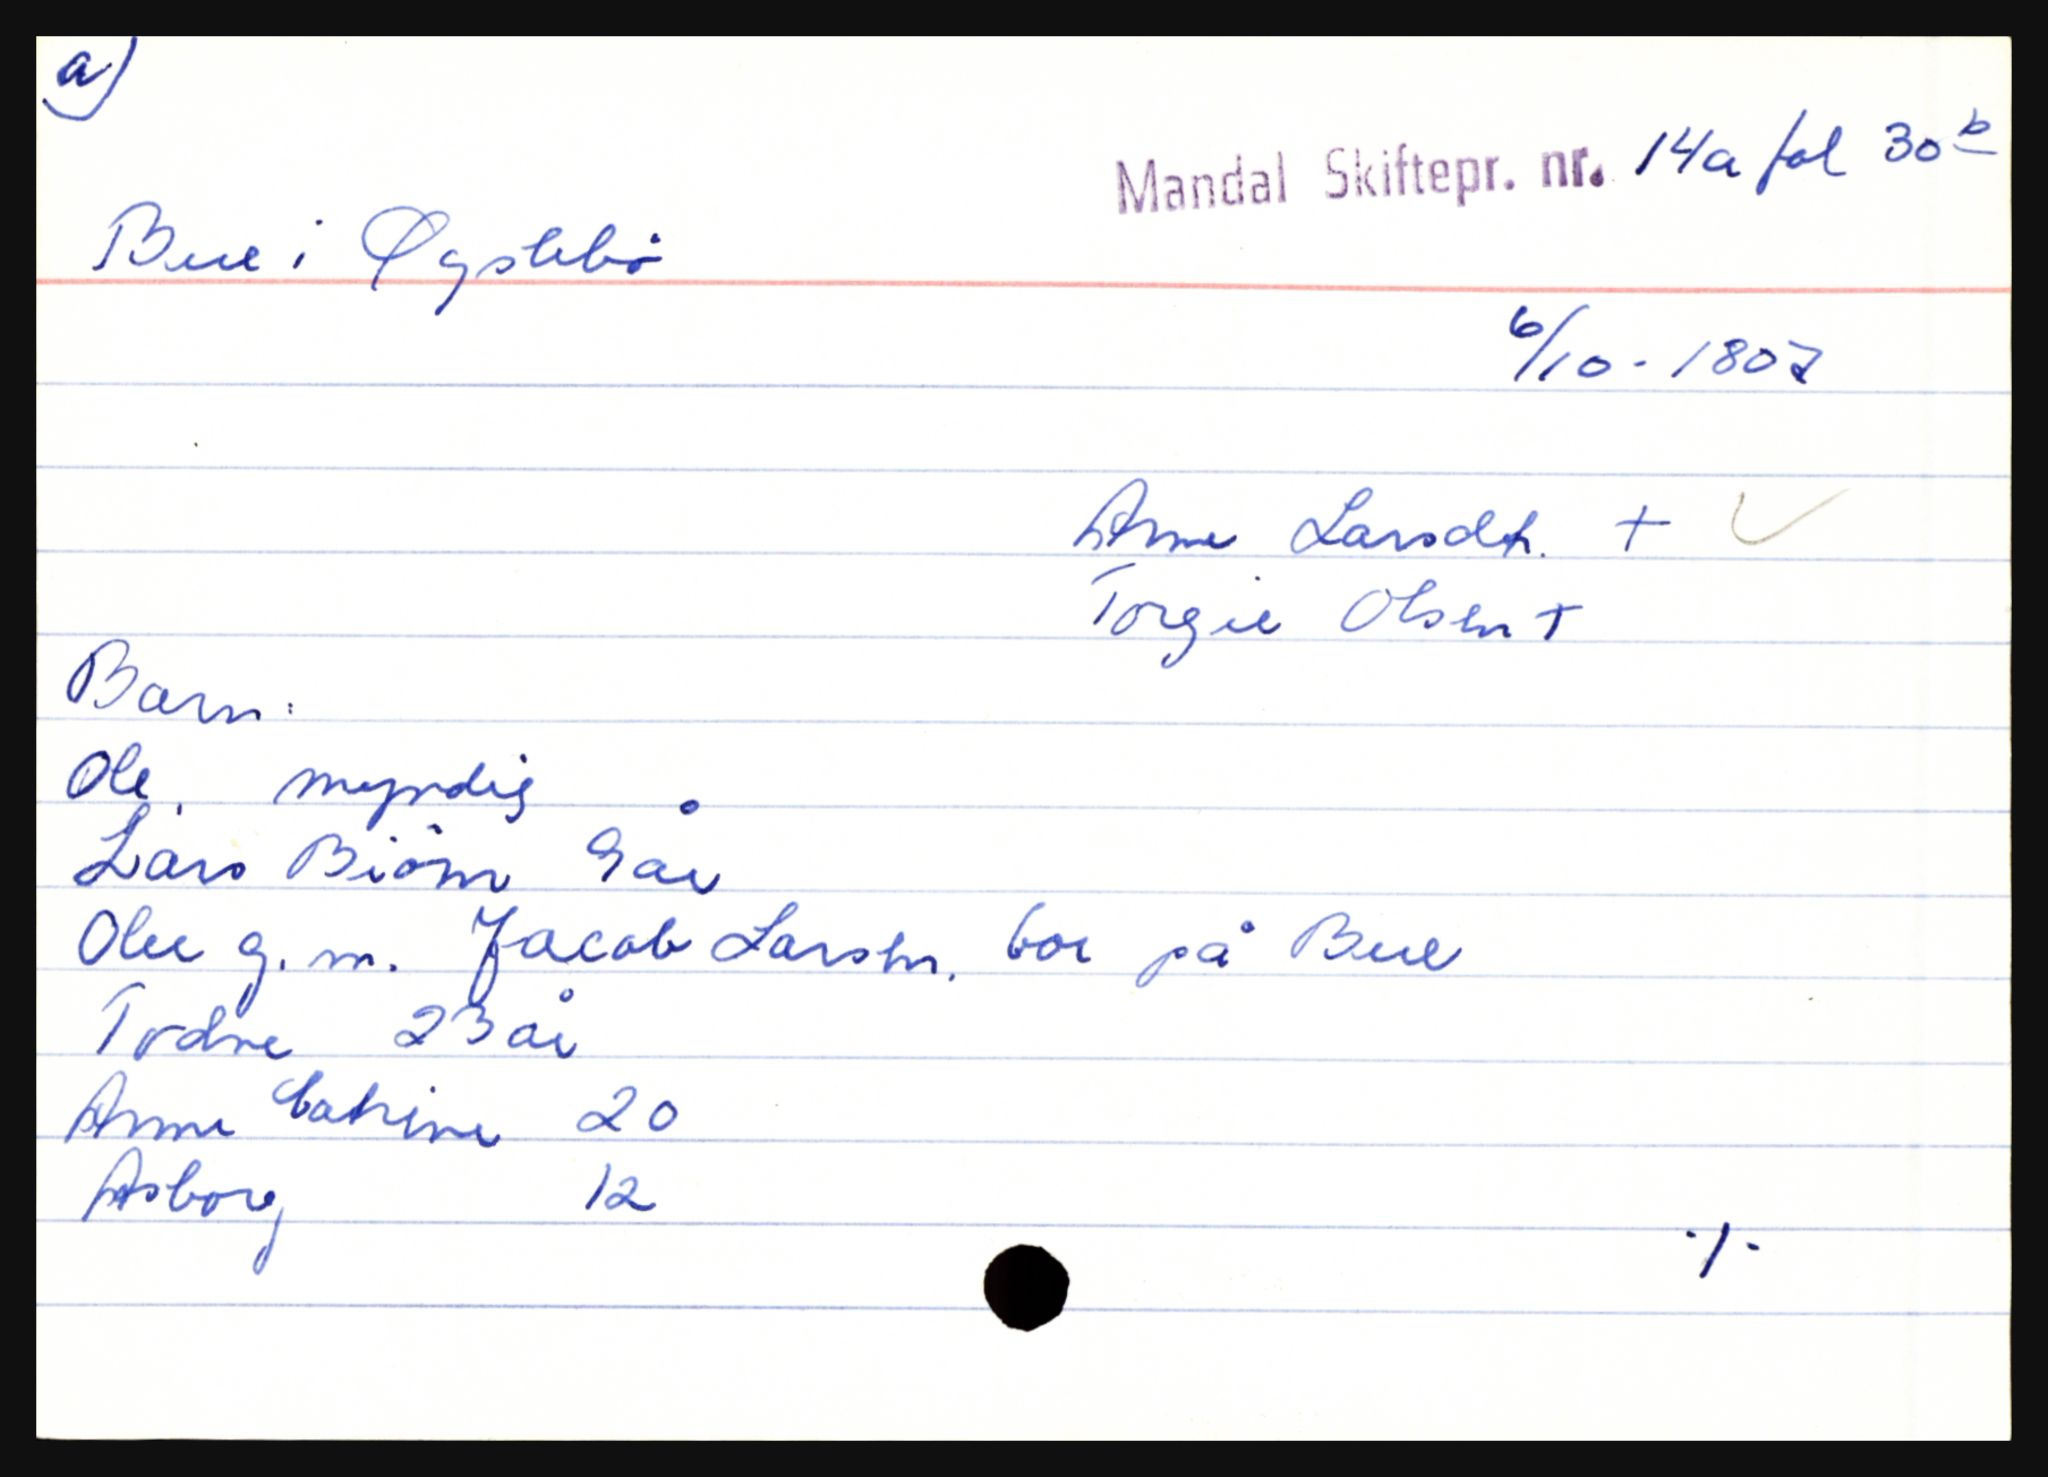 a)
Mandal Skiftepr. nr. 14a fol 30b
Bue i Øyslebø
6/10 - 1807
Anne Larsdt. +
Torgie Olsen +
Barn:
Ole, myndig
Lars Biørn 9 år
Olee g. m. Jacob Larsen. bor på Bue
Todne 23 år
Anne Catrine 20
Asborg 12
·/·